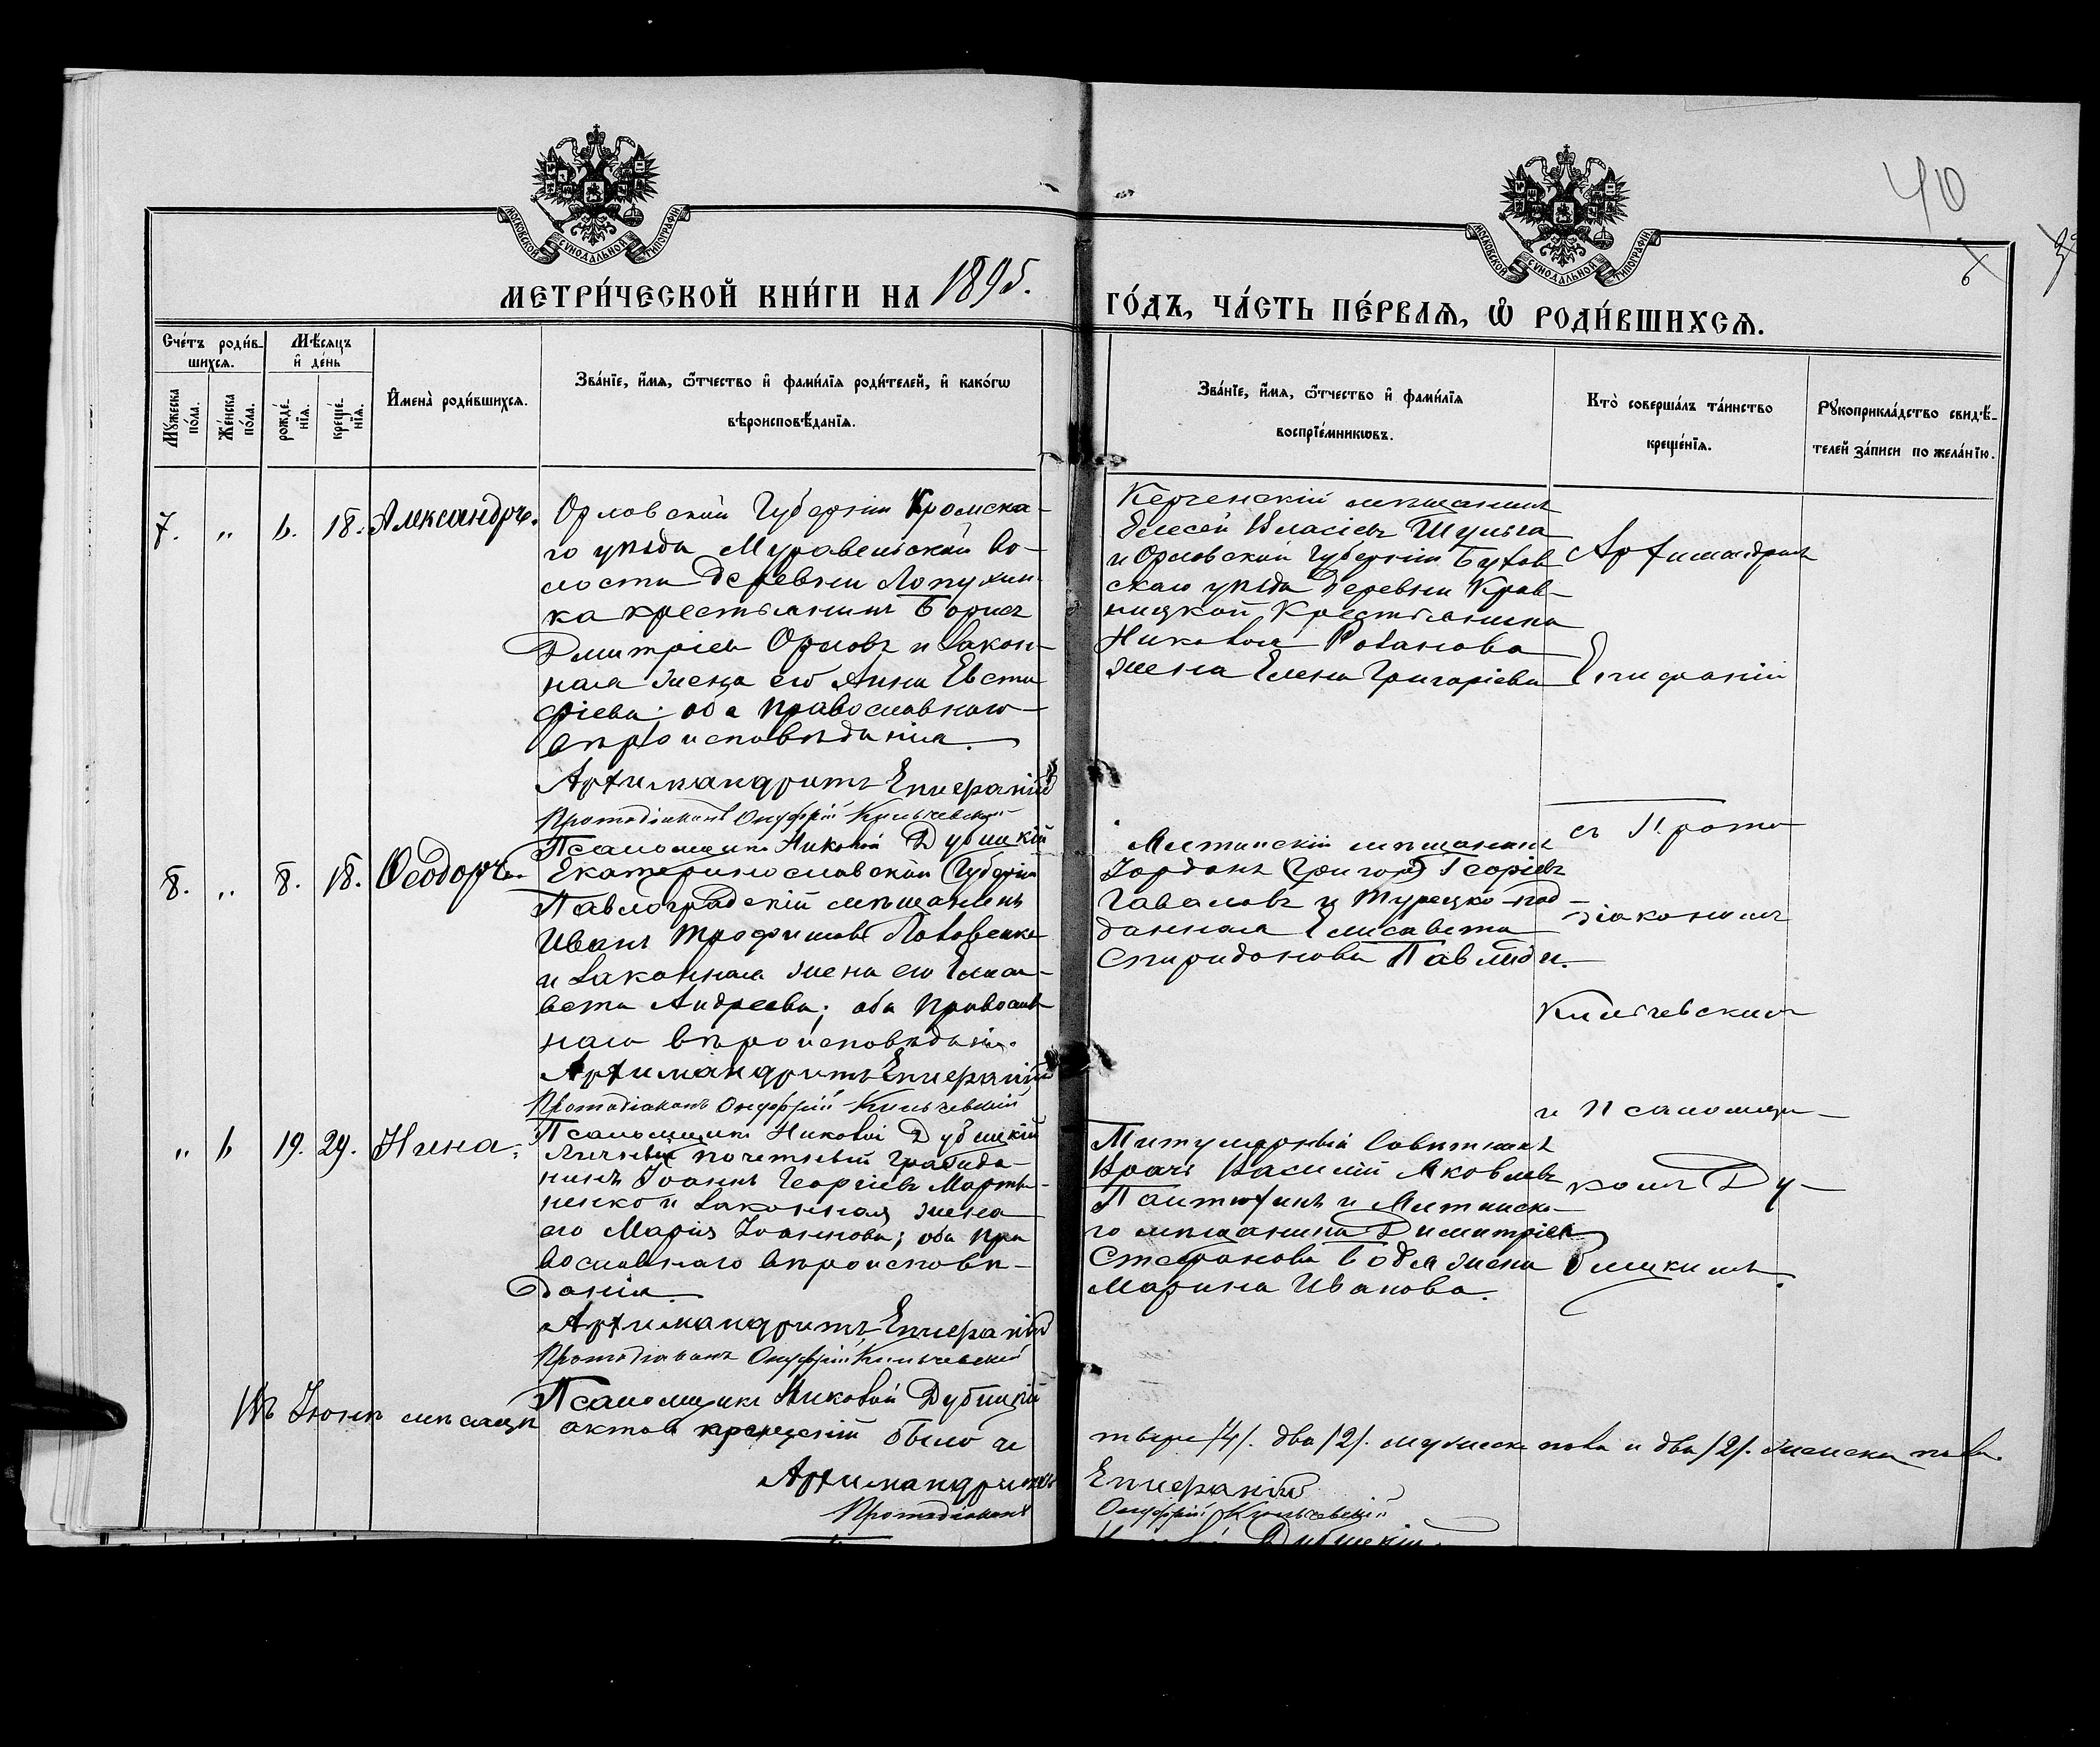 40
6
МОСКОВСКОЙ СѴНОДАЛЬНОЙ ТИПОГРАФІИ
МОСКОВСКОЙ СѴНОДАЛЬНОЙ ТИПОГРАФІИ
МЕТРИ́ЧЕСКОЙ КНИ́ГИ НА 1895.
ГО́ДЪ, ЧА́СТЬ ПЕ́РВАѦ, Ѡ҆ РОДИ́ВШИХСѦ.
Сче́тъ роди́в-
шихсѧ.
Мѣ́сѧцъ
и҆ де́нь
Мꙋ́жеска по́ла.
Же́нска по́ла.
рожде́-
нїѧ.
креще́-
нїѧ.
И҆мена̀ роди́вшихсѧ.
Зва́нїе, и҆́мѧ, ѻ҆́тчество и҆ фами́лїѧ роди́телей, и҆ како́гѡ
вѣроисповѣ́данїѧ.
Зва́нїе, и҆́мѧ, ѻ҆́тчество и҆ фами́лїѧ
воспрїе́мникѡвъ.
Кто̀ соверша́лъ та́инство
креще́нїѧ.
Рꙋкоприкла́дство свидѣ́-
телей за́писи по жела́нїю.
7. „ 6. 18. Александръ.
Орловской Губерніи Кромска-
го уѣзда Муравельской во-
лости деревни Лопухин-
ка крестьянинъ Борисъ
Дмитріевъ Орловъ и закон-
ная жена его Анна Евста
фіева; оба православнаго
вѣроисповѣданія.
Архимандритъ Епифаній
Протодіаконъ Онуфрій Кильчевскій
Псаломщикъ Николай Дубицкій
Керченскій мѣщанинъ
Елесей Власіевъ Шульга
и Орловской Губерніи
скаго уѣзда деревни Крав-
ницкой Крестьянина
Николая Розанова
жена Елена Григоріева
Архимандритъ
Епифаній
съ Прото
діакономъ
Кильчевскимъ
и Псаломщи-
комъ Ду-
бицкимъ.
8. „ 8. 18. Ѳеодоръ.
Екатеринославской Губерніи
Павлоградскій мѣщанинъ
Иванъ Трофимовъ
и законная жена его Елиса-
вета Андреева; оба православ
наго вѣроисповѣданія.
Архимандритъ Епифаній
Протодіаконъ Онуфрій Кильчевскій
Псаломщикъ Николай Дубицкій
мѣщанинъ
Іорданъ (Григорій) Георгіевъ
Гаваловъ и Турецко-под-
данная Елисавета
Спиридонова Павлиди.
„ 6 19. 29. Нина.
Личный почетный гражда-
нинъ Іоаннъ Георгіевъ Марты-
ненко и законная жена
его Марія Іоаннова; оба пра
вославнаго вѣроисповѣ-
данія.
Архимандритъ Епифаній
Протодіаконъ Онуфрій Кильчевскій
Псаломщикъ Николай Дубицкій
Титулярный Совѣтникъ
Врачъ Василій Яковлевъ
Пантюхинъ и
го мѣщанина Димитрія
Стефанова жена
Марина Иванова.
Въ Іюнѣ мѣсяцѣ актовъ крещеній было че
тыре /4/. два /2/. мужеска пола и два /2/. женска пола.
Архимандритъ Епифаній
Протодіаконъ Онуфрій Кильчевскій
Николай Дубицкій.